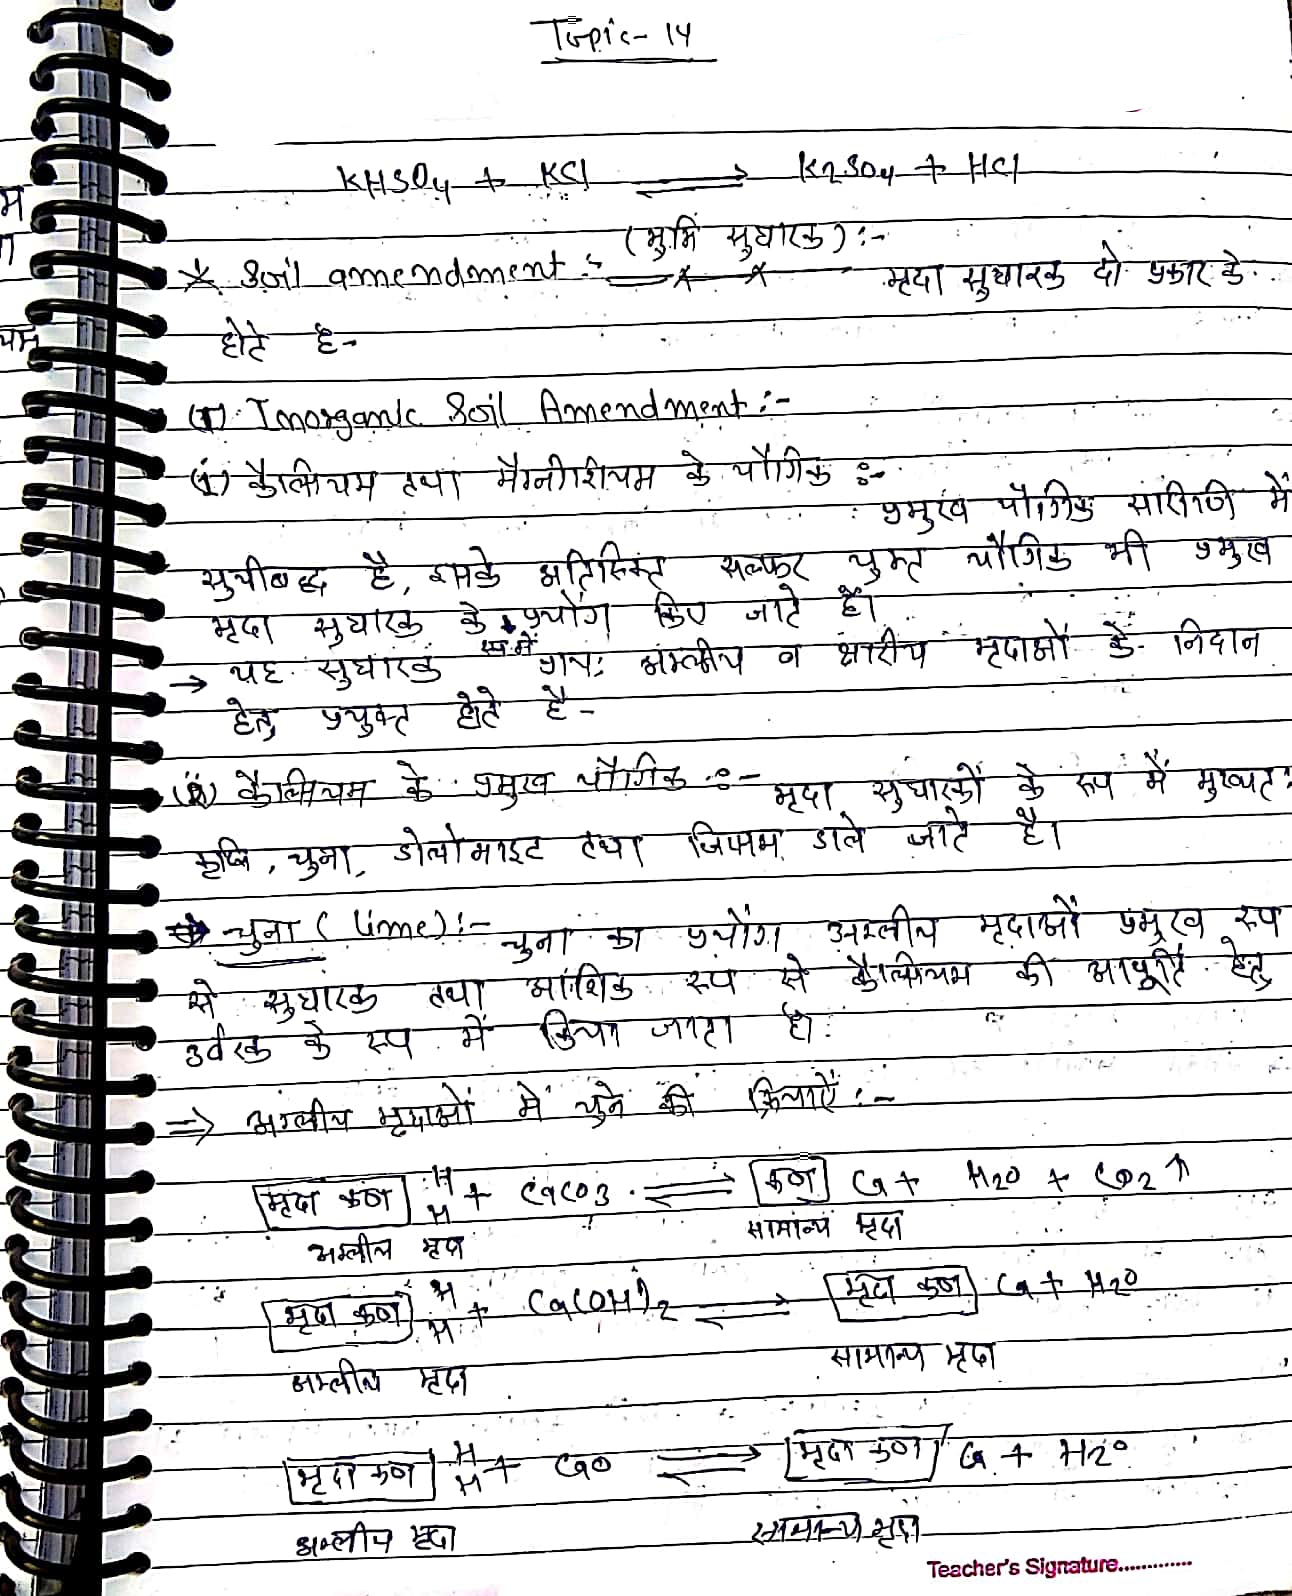 Topic- 14
KHSO4 + KCl ⇌ K2SO4 + HCl
(भुमि सुधारक) :-
* Soil amendment :- मृदा सुधारक दो प्रकार के
होते है-
(I) Inorganic Soil Amendment :-
(i) कैल्सियम तथा मैग्नीशियम के यौगिक :-
प्रमुख यौगिक सारिणी में
सुचीबद्ध है, इसके अतिरिक्त सल्फर युक्त यौगिक भी प्रमुख
मृदा सुधारक के ↓ प्रयोग किए जाते है।
रूप में
→ यह सुधारक प्रायः अम्लीय व क्षारीय मृदाओं के निदान
हेतु प्रयुक्त होते है -
कैल्सियम के प्रमुख यौगिक :- मृदा सुधारकों के रूप में मुख्यतः
कृषि, चुना, डोलोमाइट तथा जिप्सम डाले जाते है।
चुना ( lime) :- चुना का प्रयोग अम्लीय मृदाओं प्रमुख रूप
से सुधारक तथा आंशिक रूप से कैल्सियम की आपूर्ति हेतु
उर्वरक के रूप में किया जाता है।
⇒ अम्लीय मृदाओं में चुने की क्रियाऐं :-
मृदा कण H H + CaCO3 ⇌ कण Ca + H2O + CO2 ↑
अम्लीय मृदा सामान्य मृदा
मृदा कण H H + Ca(OH)2 ⇌ मृदा कण Ca + H2O
अम्लीय मृदा सामान्य मृदा
मृदा कण H H + CaO ⇌ मृदा कण Ca + H2O
अम्लीय मृदा सामान्य मृदा
Teacher's Signature.............